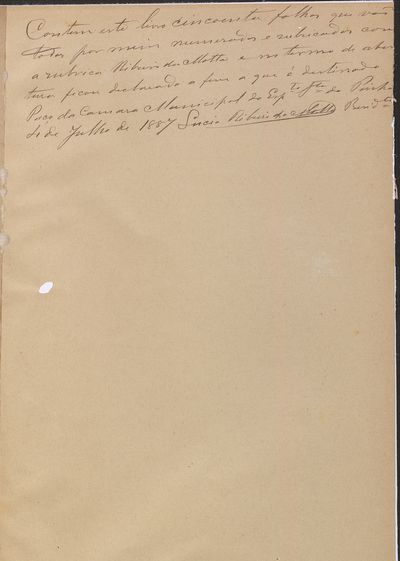 Contem este livro cincoenta folhas que vão
todas por mim numeradas e rubricadas com
a rubrica Ribeiro da Motta e no termo de aber
tura ficou declarado a fim a que é destinado
Paço da Camara Municipal do Esp.to S.to do Pinhal
4 de Julho de 1887 Lucio Ribeiro da Motta Presid.te